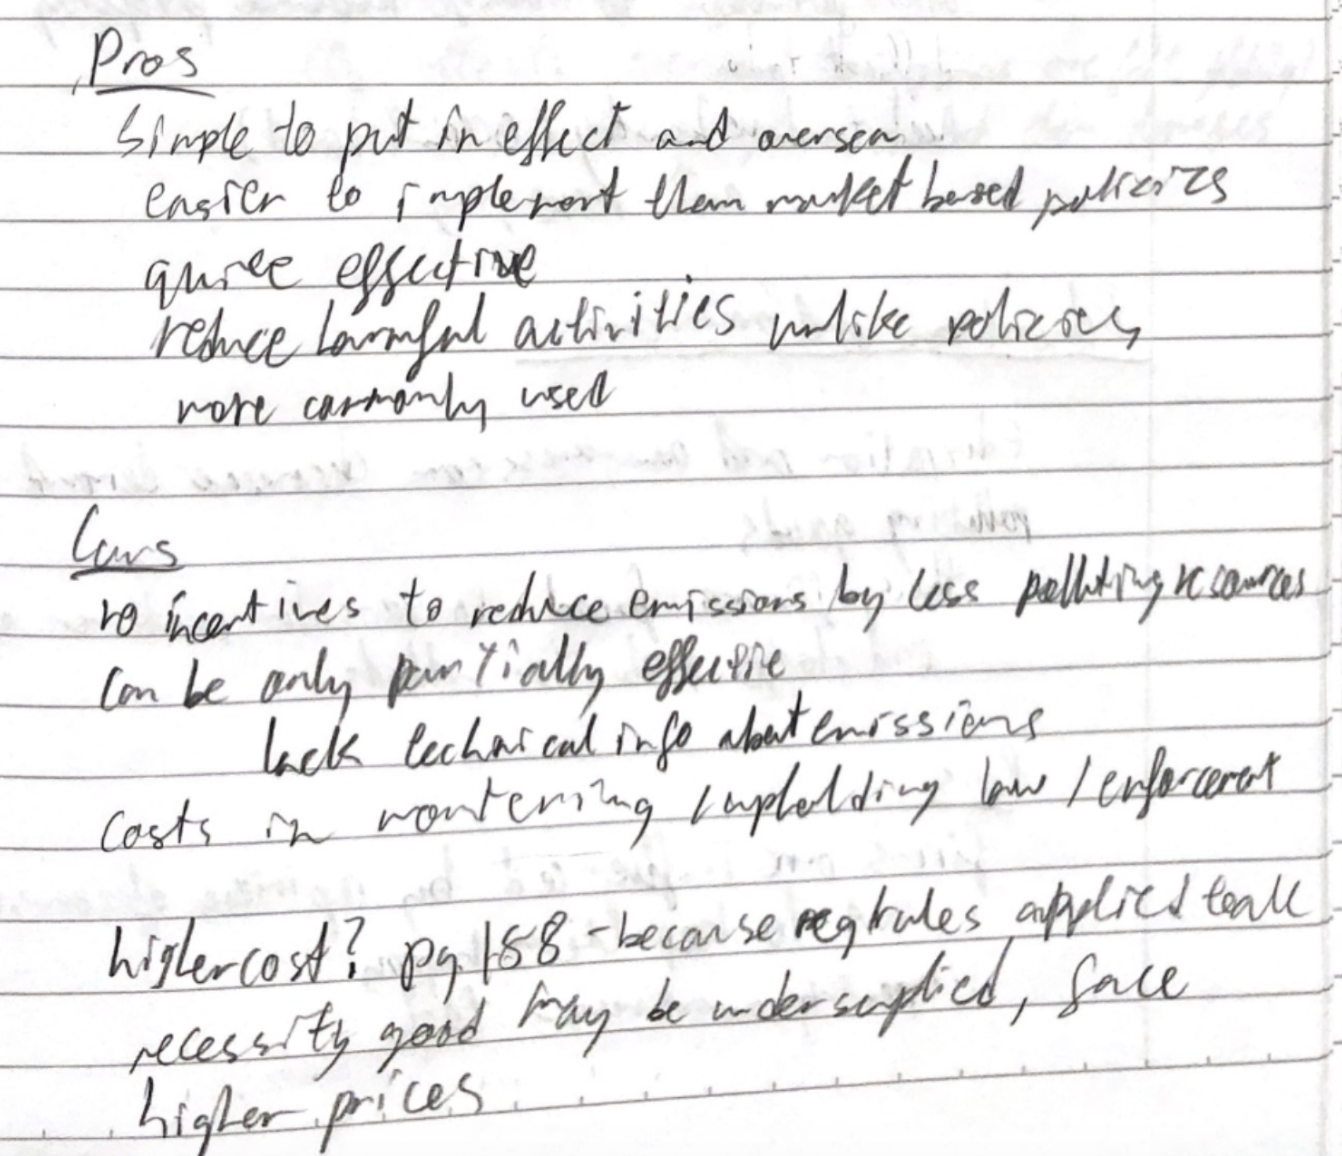 Pros
Simple to put in effect and oversea
easier to implement than market based policies
quite effective
reduce harmful activities unlike policies
more commonly used
Cons
no incentives to reduce emissions by less polluting resources
can be only partially effective
lack technical info about emissions
costs in monitering / upholding law / enforcement
higher cost? pg 188 - because reg rules applied to all
necessity good may be undersupplied, face
higher prices